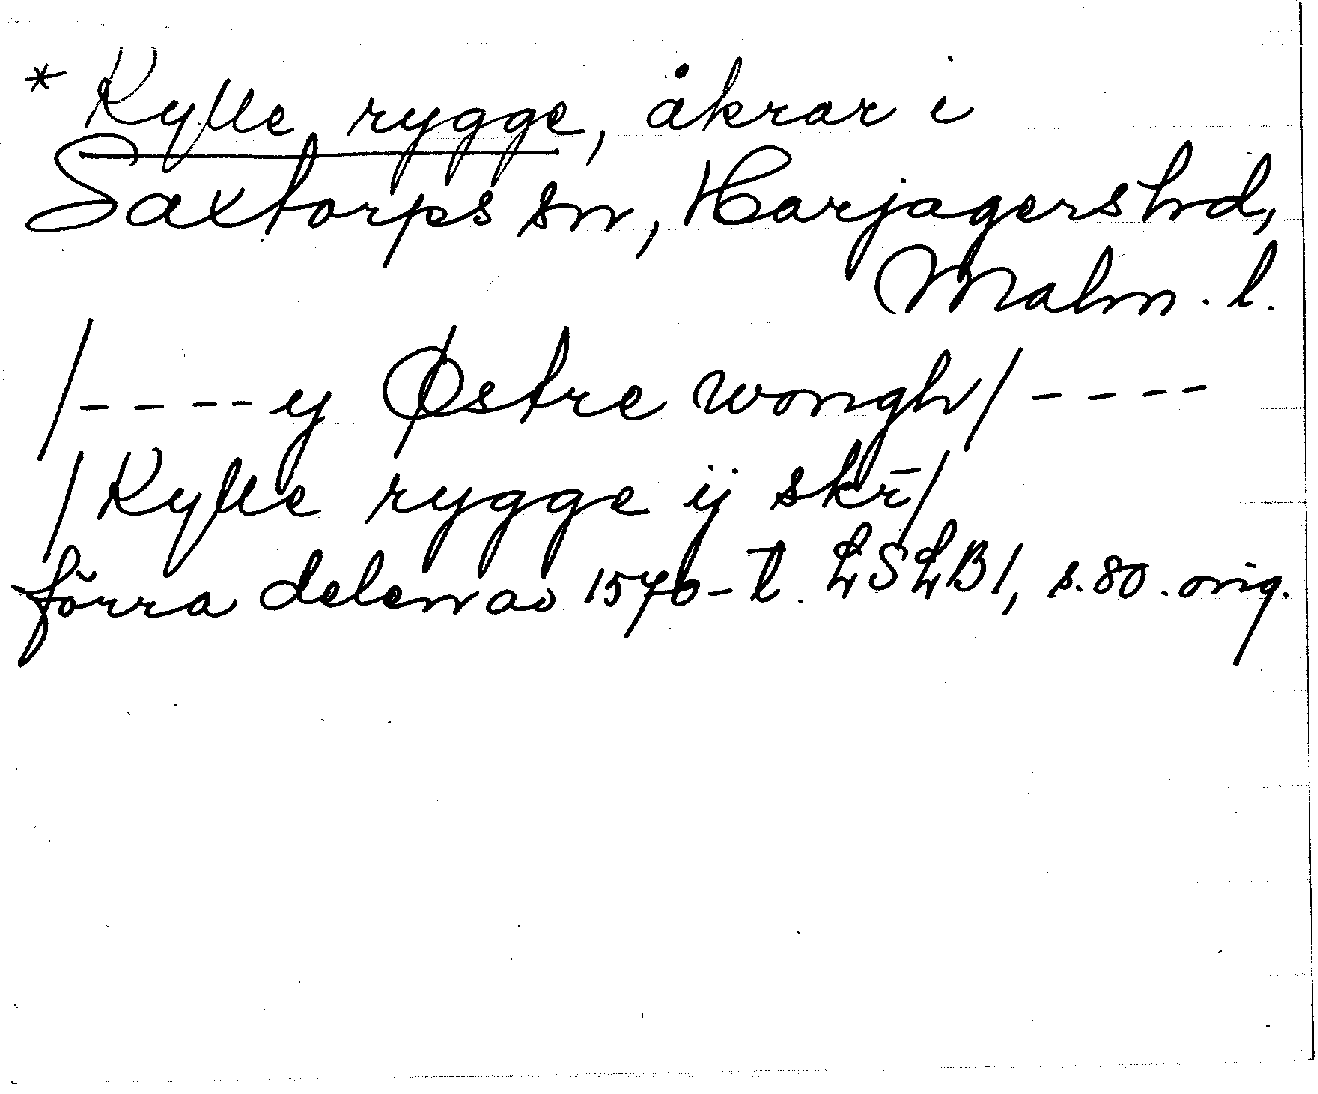 * Kylle rygge, åkrar i
Saxtorps sn, Harjagers hd,
Malm. l.
/---- y Østre wongh/ ----
/Kylle rygge ij skr̄/
förra delen av 1570-t. LSLB1, s. 80. orig.